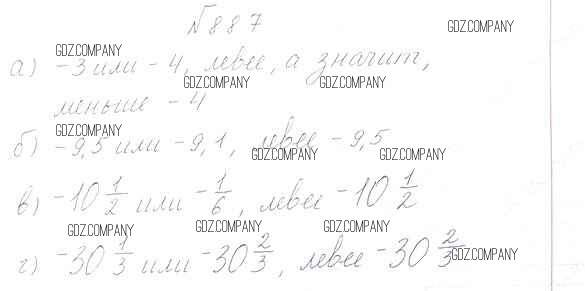 №887
GDZ.COMPANY
GDZ.COMPANY
а) -3 или -4, левее, а значит,
GDZ.COMPANY GDZ.COMPANY
меньше -4
GDZ.COMPANY
б) -9,5 или -9,1, левее -9,5
GDZ.COMPANY GDZ.COMPANY
в) -10 1/2 или -1/6, левее -10 1/2
GDZ.COMPANY GDZ.COMPANY GDZ.COMPANY
г) -30 1/3 или -30 2/3, левее -30 2/3
GDZ.COMPANY